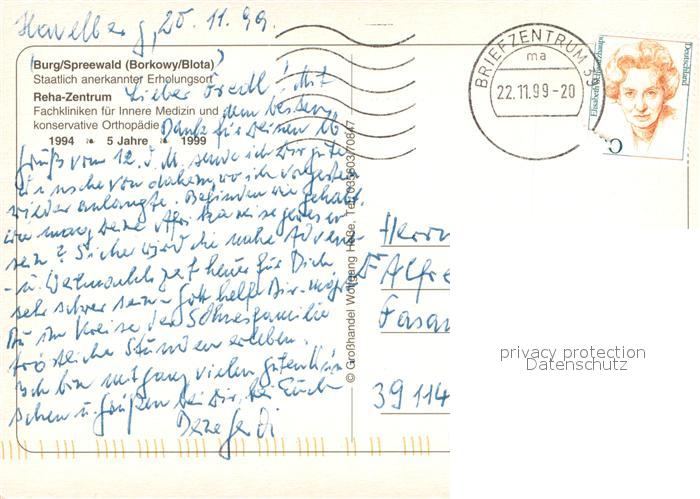 Havelberg, 20.11.99.
Burg/Spreewald (Borkowy/Blota)
Staatlich anerkannter Erholungsort
Reha-Zentrum
Fachkliniken für Innere Medizin und
konservative Orthopädie
1994 ❧ 5 Jahre ❧ 1999
Lieber Fredl! Mit
dem besten
Dank für Deinen lb
Gruß vom 12. d. M. sende ich Dir gute
Wünsche von daheim, wo ich vorgestern
wieder anlangte. Befinden wie gehabt.
wie mag Deine Afrikareise gewesen
sein? Sicher wird die nahe Advents
- u. Weihnachtszeit heuer für Dich
sehr schwer sein - Gott helfe Dir - mögest
Du im Kreise der Sohnesfamilie
tröstliche Stunden erleben.
Ich bin mit ganz vielen guten Wün
schen u. Grüßen bei Dir, bei Euch
Deine Gerdi
© Großhandel Wolfgang Heße. Tel. 035603/70847
BRIEFZENTRUM 39
ma
22.11.99-20
Deutschland
Elisabeth Schwarzhaupt
Herrn
Dr Alfre
Fasan
39114
privacy protection
Datenschutz